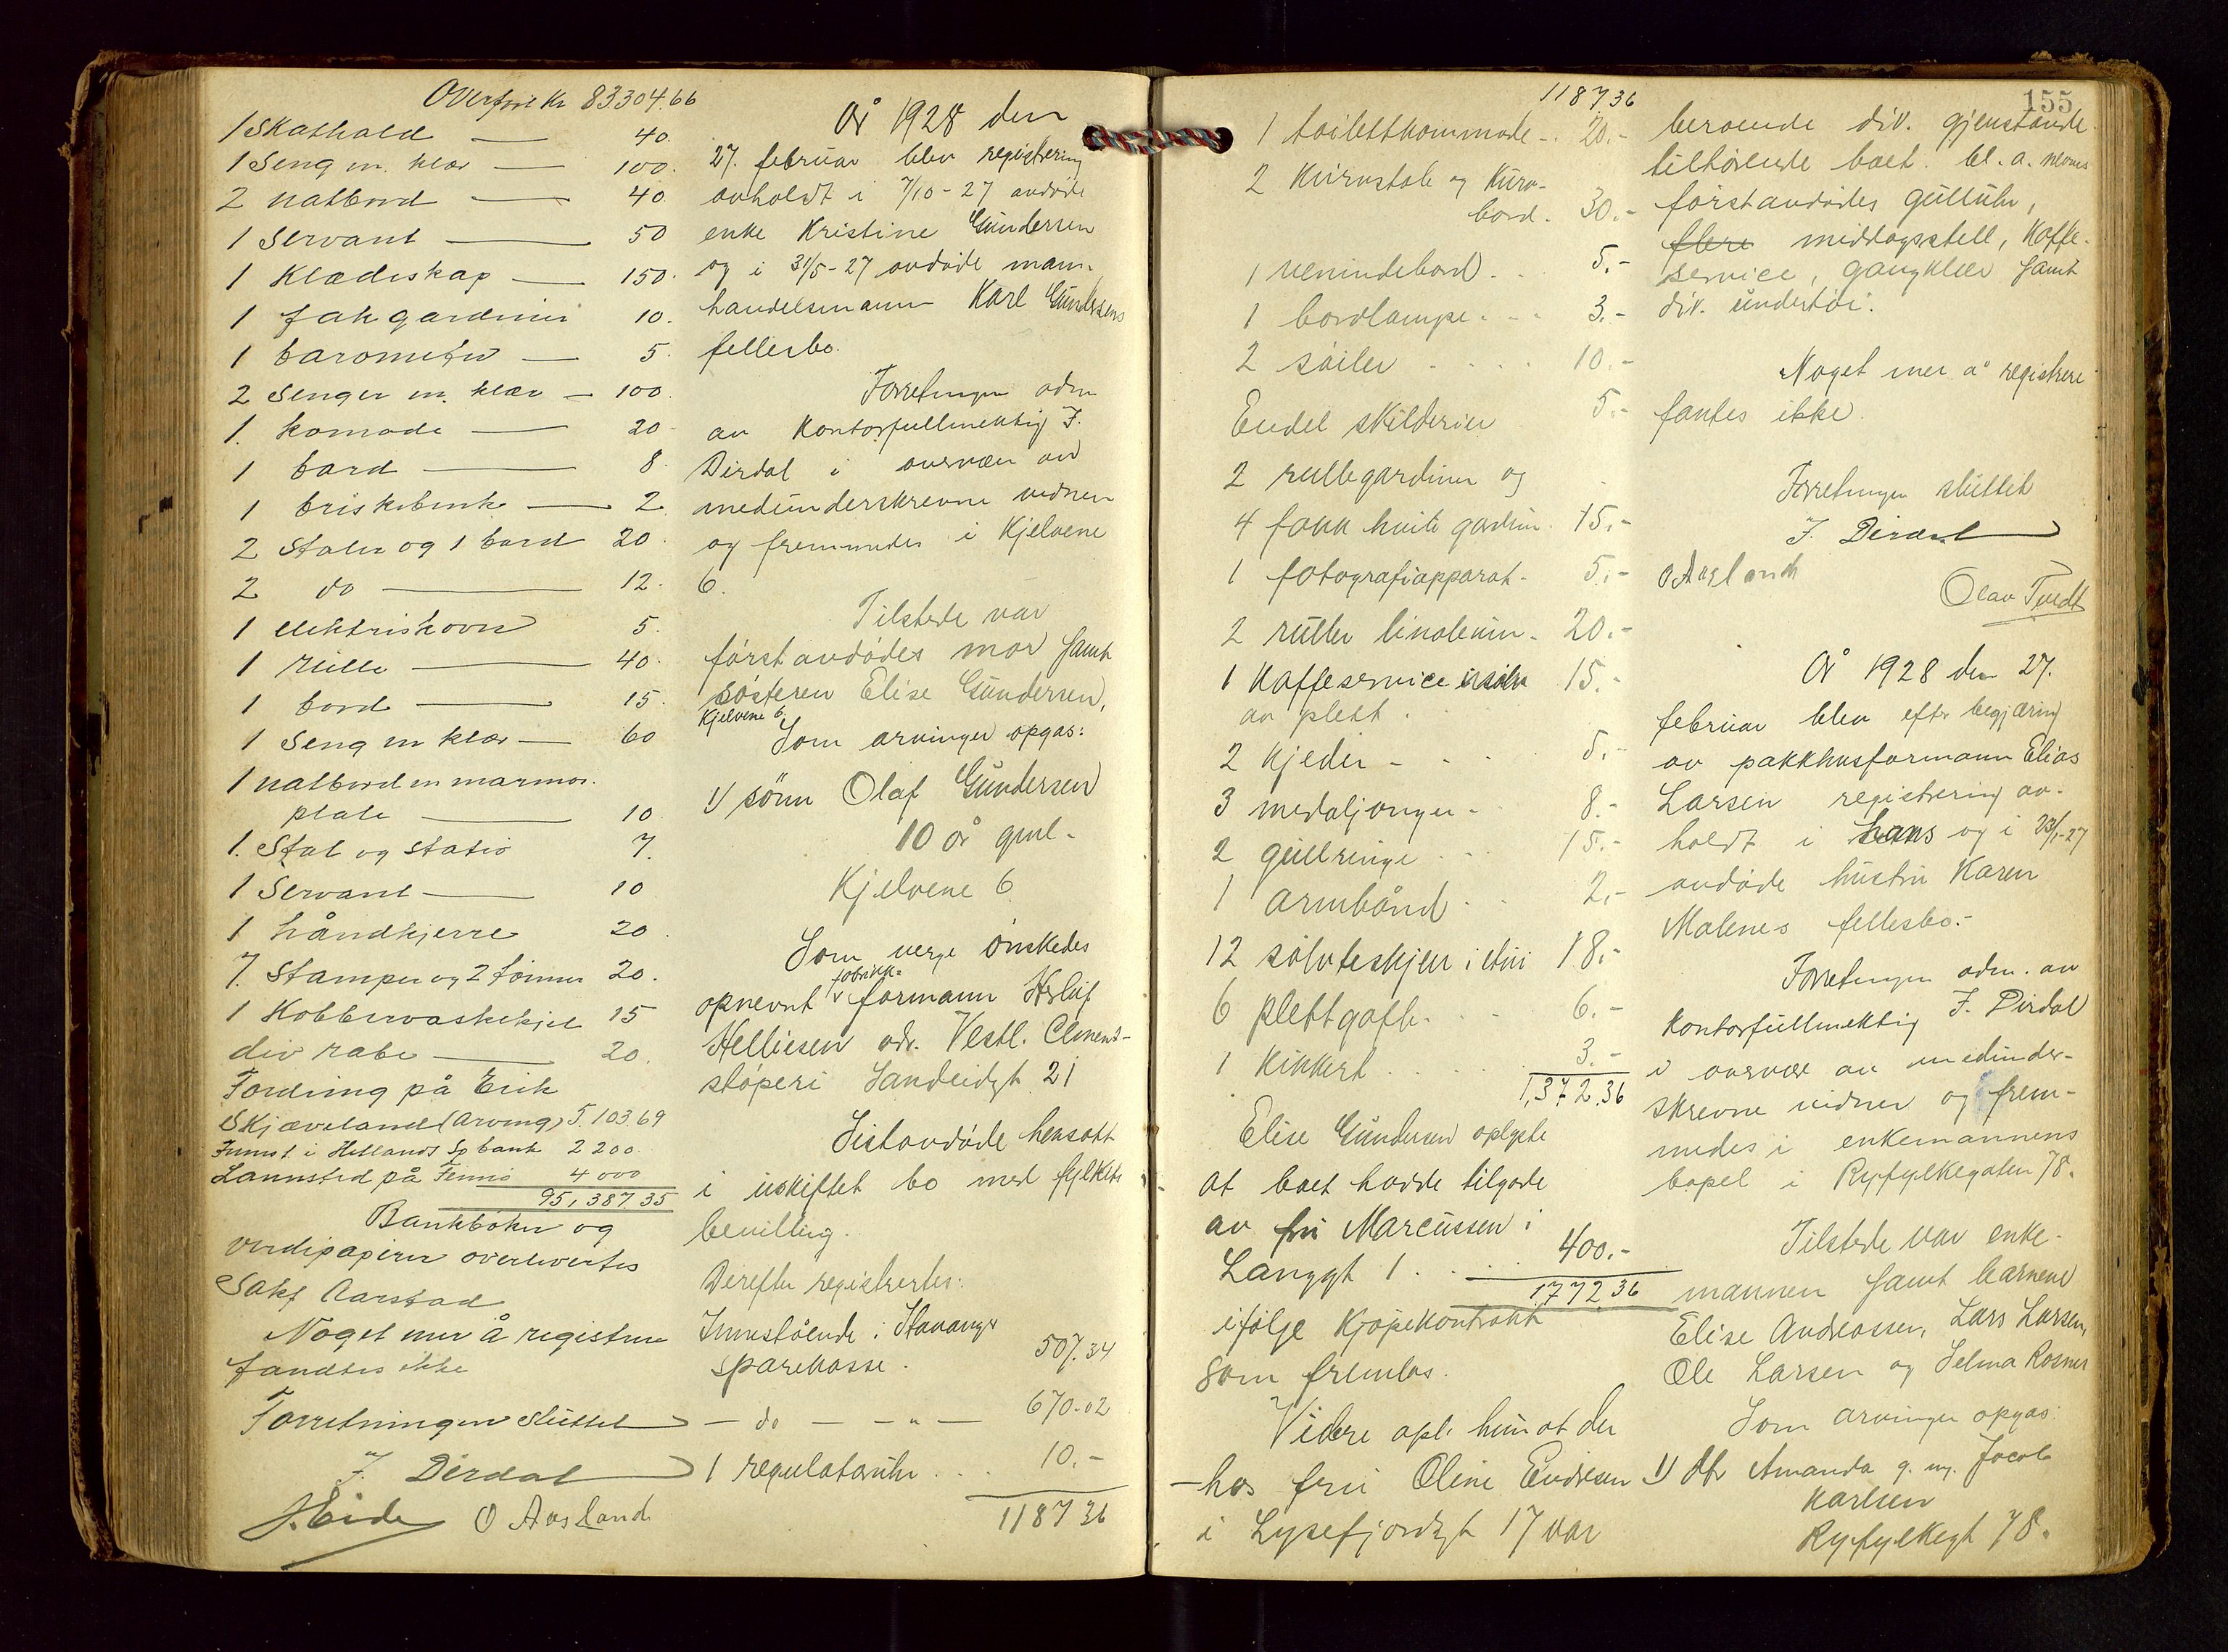 Overført Kr 83304.66
1 Skathald — 40.
1 Seng m. klær — 100.
2 natbord — 40
1 Servant — 50
1 Klædeskap — 150.
1 fah gardiner 10.
1 barometer — 5.
2 Senger m. klær — 100.
1. komode — 20
1 bord — 8.
1 briskebenk — 2
2 Stoler og 1 bord 20.
2 do — 12.
1 elektriskovn 5.
1 rulle — 40.
1 bord — 15.
1 Seng m klær — 60
1 natbord m marmor.
plate — 10
1. Stol og stativ 7.
1 Servant — 10
1 håndkjerre 20.
7. Stamper og 2 tønner 20.
1 Kobbervaskekjel 15
div rabe — 20.
Fordring på Erik
Skjæveland (Arving) 5.103.69
Innst. i Hetlands Sp bank 2200.
Lannsted på Tennis 4000
95,387 35
Bankbøker og
verdipapirer overlevertes
Sakf Aarstad
Noget mer å registrere
fandtes ikke
Forretningen sluttet
J. Dirdal
H. Eide O Aasland
År 1928 den
27. februar blev registrering
avholdt i 7/10-27 avdøde
enke Kristine Gundersen
og i 31/5-27 avdøde mann
handelsmann Karl Gundersens
fellesbo.
Forretningen adm
av Kontorfullmektig J.
Dirdal i overvær av
medunderskrevne vidner
og fremmedes i Kjelvene
6.
Tilstede var
førstavdødes mor samt
søsteren Elise Gundersen,
Kjelvene 6.
Som arvinger opgas:
1/ sønn Olaf Gundersen
10 år gml.
Kjelvene 6.
Som verge ønskedes
fabrikk-
opnevnt formann Herluf
Helliesen adr. Vestl. Clement-
støperi Sandeidgt 21
Sistavdøde hensatt
i uskiftet bo med fylkets
bevilling.
Derefter registrertes:
Innestående i Stavanger
sparekasse. 507.34
— do — „ — 670.02
1 regulatoruhr . . . 10.-
1187 36
1187 36
1 toilettkommode - 20.-
2 Kurvstole og Kurv-
bord. 30.-
1 venindebord . . 5.-
1 bordlampe . - - 3.-
2 søiler . . . . 10.-
Endel skilderier 5.-
2 rullegardiner og
4 fakk hvite gardin. 15.-
1 fotografiapparat. 5.-
2 ruller linoleum. 20.-
1 Kaffeservice 15.-
av plett .
2 Kjeder - - . 5.-
3 medaljonger - 8.-
2 gullringe . . . 15.-
1 armbånd . . 2.-
12 sølvteskjeer i etui 18.-
6 plettgafler . . . 6.-
1 Kikkert . . . . . . 3.-
1,372.36
Elise Gundersen oplyste
at boet hadde tilgode
av fru Marcussen i
Langgt 1 . . . . 400.-
1772.36
ifølge Kjøpekontrakt
som fremlas.
Videre opl. hun at der
— hos fru Oline Endresen
i Lysefjordgt 17 var
155
beroende div. gjenstande
tilhørende boet. bl. a. nevnes
førstavdødes gulluhr,
flere middagsstell, Kaffe-
service, gangklær samt
div. undertøi.
Noget mer å registrere
fantes ikke.
Forretningen sluttet
J. Dirdal
O Aasland
Olav Tvedt
År 1928 den 27.
februar blev efter begjæring
av pakkhusformann Elias
Larsen registrering av-
holdt i hans og i 23/1-27
avdøde hustru Karen
Malenes fellesbo.-
Forretningen adm. av
Kontorfullmektig J. Dirdal
i overvær av medunder-
skrevne vidner og frem-
medes i enkemannens
bopel i Ryfylkegaten 78.
Tilstede var enke-
mannen samt barnene
Elise Andreassen, Lars Larsen,
Ole Larsen og Selma Rosnes
Som arvinger opgas:
1/ Dtr Amanda g. m. Jacob
Karlsen
Ryfylkegt 78.